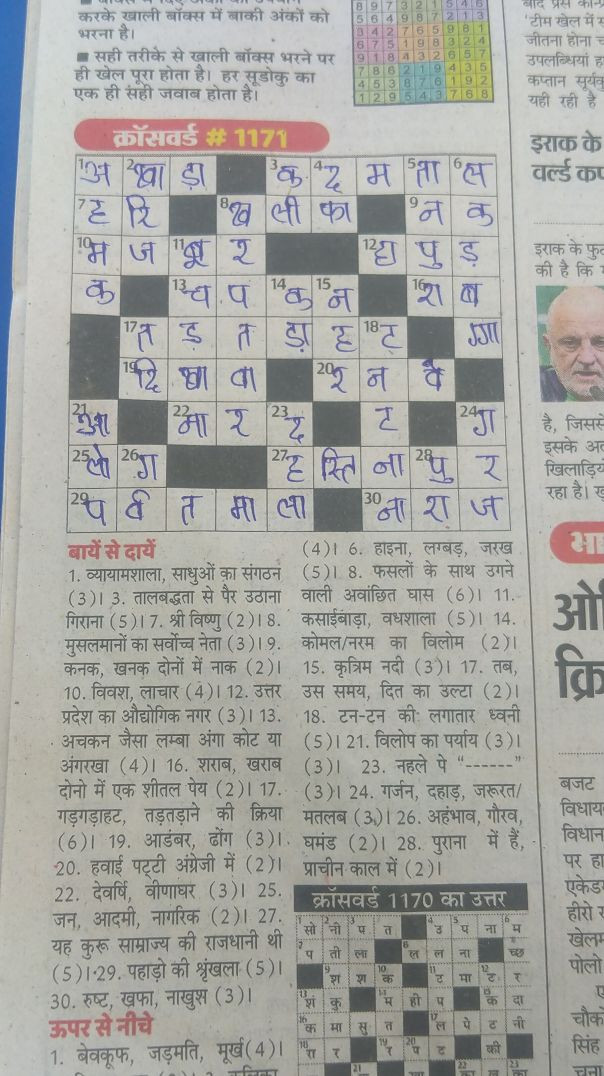 करके खाली बॉक्स में बाकी अंकों को
भरना है।
■ सही तरीके से खाली बॉक्स भरने पर
ही खेल पूरा होता है। हर सूडोकु का
एक ही सही जवाब होता है।
8 9 7 3 2 1 5 4 6
5 6 4 9 8 7 2 1 3
3 4 2 7 6 5 9 8 1
6 7 5 1 9 8 3 2 4
9 1 8 4 3 2 6 5 7
7 8 6 2 1 9 4 3 5
4 5 3 8 7 6 1 9 2
1 2 9 5 4 3 7 6 8
क्रॉसवर्ड # 1171
1 अ 2 खा ड़ा 3 क 4 द म 5 ता 6 ल
7 ह रि 8 ख ली फा 9 न क
10 म ज 11 बू र 12 हा पु ड़
क 13 च प 14 क 15 न 16 रा ब
17 त ड़ त ड़ा ह 18 ट ग्गा
19 दि खा वा 20 र न वे
21 आ 22 ना र 23 द ट 24 ग
25 लो 26 ग 27 ह स्ति ना 28 पु र
29 प र्व त मा ला 30 ना रा ज
बायें से दायें
1. व्यायामशाला, साधुओं का संगठन
(3)। 3. तालबद्धता से पैर उठाना
गिराना (5)। 7. श्री विष्णु (2)। 8.
मुसलमानों का सर्वोच्च नेता (3)। 9.
कनक, खनक दोनों में नाक (2)।
10. विवश, लाचार (4)। 12. उत्तर
प्रदेश का औद्योगिक नगर (3)। 13.
अचकन जैसा लम्बा अंगा कोट या
अंगरखा (4)। 16. शराब, खराब
दोनो में एक शीतल पेय (2)। 17.
गड़गड़ाहट, तड़तड़ाने की क्रिया
(6)। 19. आडंबर, ढोंग (3)।
20. हवाई पट्टी अंग्रेजी में (2)।
22. देवर्षि, वीणाधर (3)। 25.
जन, आदमी, नागरिक (2)। 27.
यह कुरू साम्राज्य की राजधानी थी
(5)। 29. पहाड़ो की श्रृंखला (5)।
30. रुष्ट, ख़फा, नाखुश (3)।
ऊपर से नीचे
1. बेवकूफ, जड़मति, मूर्ख(4)।
(4)। 6. हाइना, लग्बड़, जरख
(5)। 8. फसलों के साथ उगने
वाली अवांछित घास (6)। 11.
कसाईबाड़ा, वधशाला (5)। 14.
कोमल/नरम का विलोम (2)।
15. कृत्रिम नदी (3)। 17. तब,
उस समय, दित का उल्टा (2)।
18. टन-टन की लगातार ध्वनी
(5)। 21. विलोप का पर्याय (3)।
(3)। 23. नहले पे "------"
(3)। 24. गर्जन, दहाड़, जरूरत/
मतलब (3)। 26. अहंभाव, गौरव,
घमंड (2)। 28. पुराना में हैं,
प्राचीन काल में (2)।
क्रॉसवर्ड 1170 का उत्तर
सो नी प त उ प ना म
प ती ला ल ल ना च्छ
श श क ट मा ट र
शं कु म ही प क दा
क मा सु त ल पे ट नी
रा र र प ट की
'टीम खेल में
जीतना होना
उपलब्धियां
कप्तान
यही रही है
इराक के
वर्ल्ड कप
इराक के
की है कि
है, जिससे
इसके
खिलाड़िय
रहा है।
ओ
क्रि
बजट
विधाय
विधान
पर
एकेड
हीरो
खेल
पोलो
चौक
सिंह